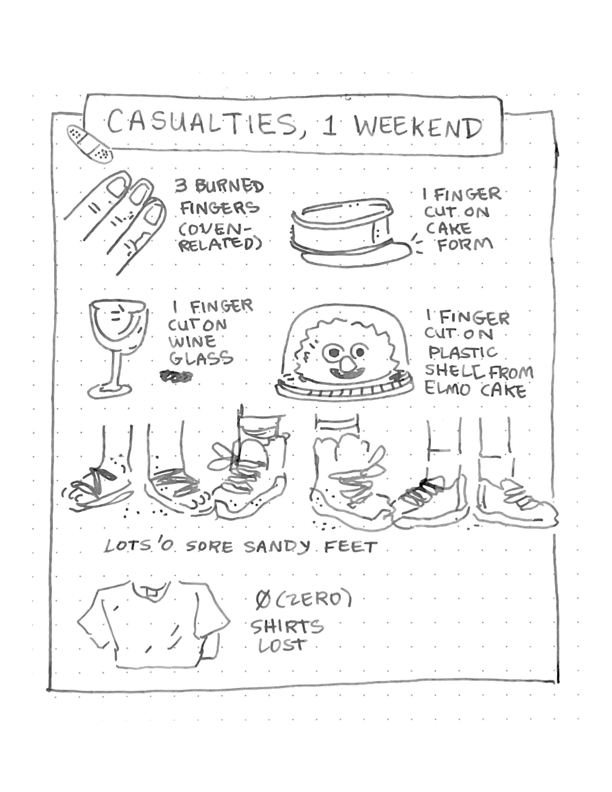 CASUALTIES, 1 WEEKEND
3 BURNED
FINGERS
(OVEN-
RELATED)
1 FINGER
CUT ON
CAKE
FORM
1 FINGER
CUT ON
WINE
GLASS
1 FINGER
CUT ON
PLASTIC
SHELL FROM
ELMO CAKE
LOTS 'O SORE SANDY FEET
Ø (ZERO)
SHIRTS
LOST